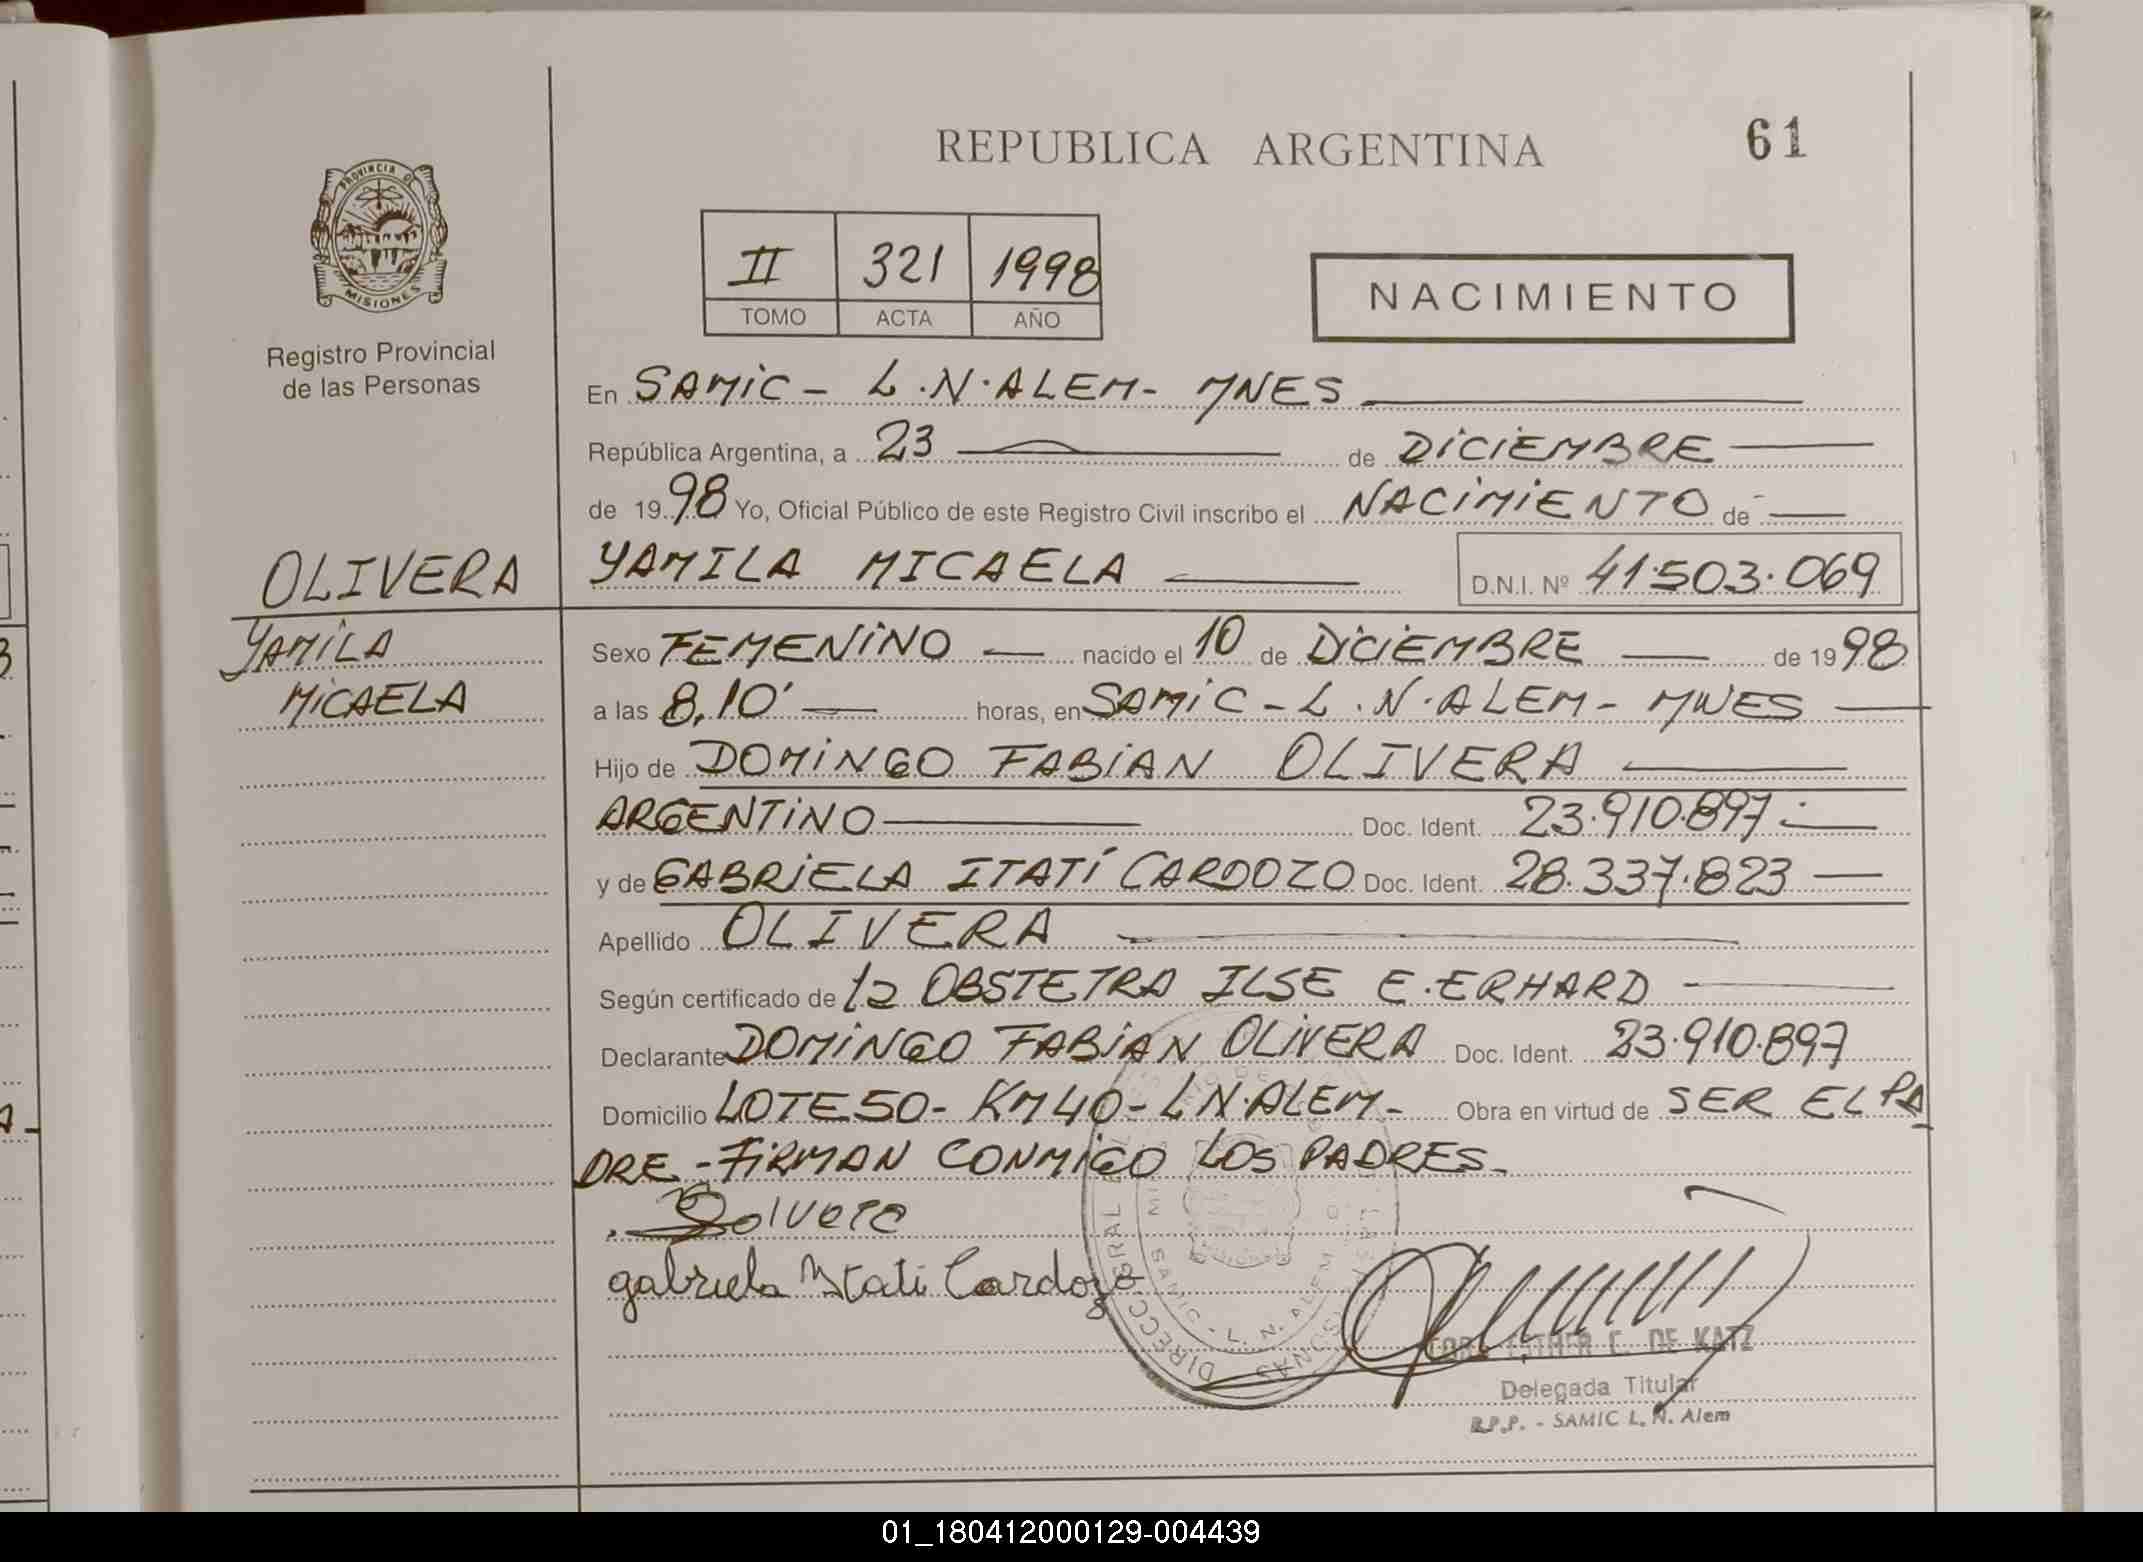 REPUBLICA ARGENTINA
61
PROVINCIA DE
MISIONES
Registro Provincial
de las Personas
II 321 1998
TOMO ACTA AÑO
NACIMIENTO
En SAMIC - L.N.ALEM - MNES
República Argentina, a 23 de DICIEMBRE
de 1998 Yo, Oficial Público de este Registro Civil inscribo el NACIMIENTO de
OLIVERA
YAMILA
MICAELA
YAMILA MICAELA D.N.I. Nº 41.503.069
Sexo FEMENINO nacido el 10 de DICIEMBRE de 1998
a las 8,10' horas, en SAMIC - L.N.ALEM - MNES
Hijo de DOMINGO FABIAN OLIVERA
ARGENTINO Doc. Ident. 23.910.897
y de GABRIELA ITATÍ CARDOZO Doc. Ident. 28.337.823
Apellido OLIVERA
Según certificado de la OBSTETRA ILSE E.ERHARD
Declarante DOMINGO FABIAN OLIVERA Doc. Ident. 23.910.897
Domicilio LOTE 50 - KM 40 - L N.ALEM - Obra en virtud de SER EL PA
DRE - FIRMAN CONMIGO LOS PADRES.
gabriela Itati Cardozo
SAMIC - L. N. ALEM
ESTHER C. DE KATZ
Delegada Titular
R.P.P. - SAMIC L. N. Alem
01_180412000129-004439